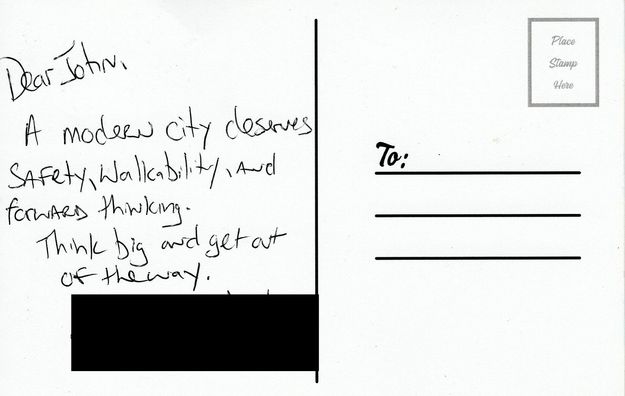 Dear John,
A modern city deserves
Safety, Walkability, and
forward thinking.
Think big and get out
of the way.
Place
Stamp
Here
To: